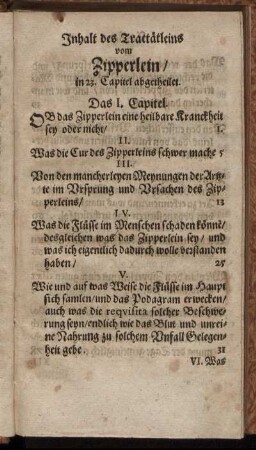 Inhalt des Tractätleins
vom
Zipperlein/
in 23. Capitel abgetheilet.
Das I. Capitel.
OB das Zipperlein eine heilbare Kranckheit
sey oder nicht/ 1.
II.
Was die Cur des Zipperleins schwer mache 5
III.
Von den mancherleyen Meynungen der Artz-
te im Vrsprung und Vrsachen des Zip-
perleins/ 13
IV.
Was die Flüsse im Menschen schaden könnē/
desgleichen was das Zipperlein sey/ und
was ich eigentlich dadurch wolle verstanden
haben/ 25
V.
Wie und auf was Weise die Flüsse im Haupt
sich samlen/und das Podagram erwecken/
auch was die reqvisita solcher Beschwe-
rung seyn/endlich wie das Blut und unrei-
ne Nahrung zu solchem Vnfall Gelegen-
heit gebe 31
VI. Was